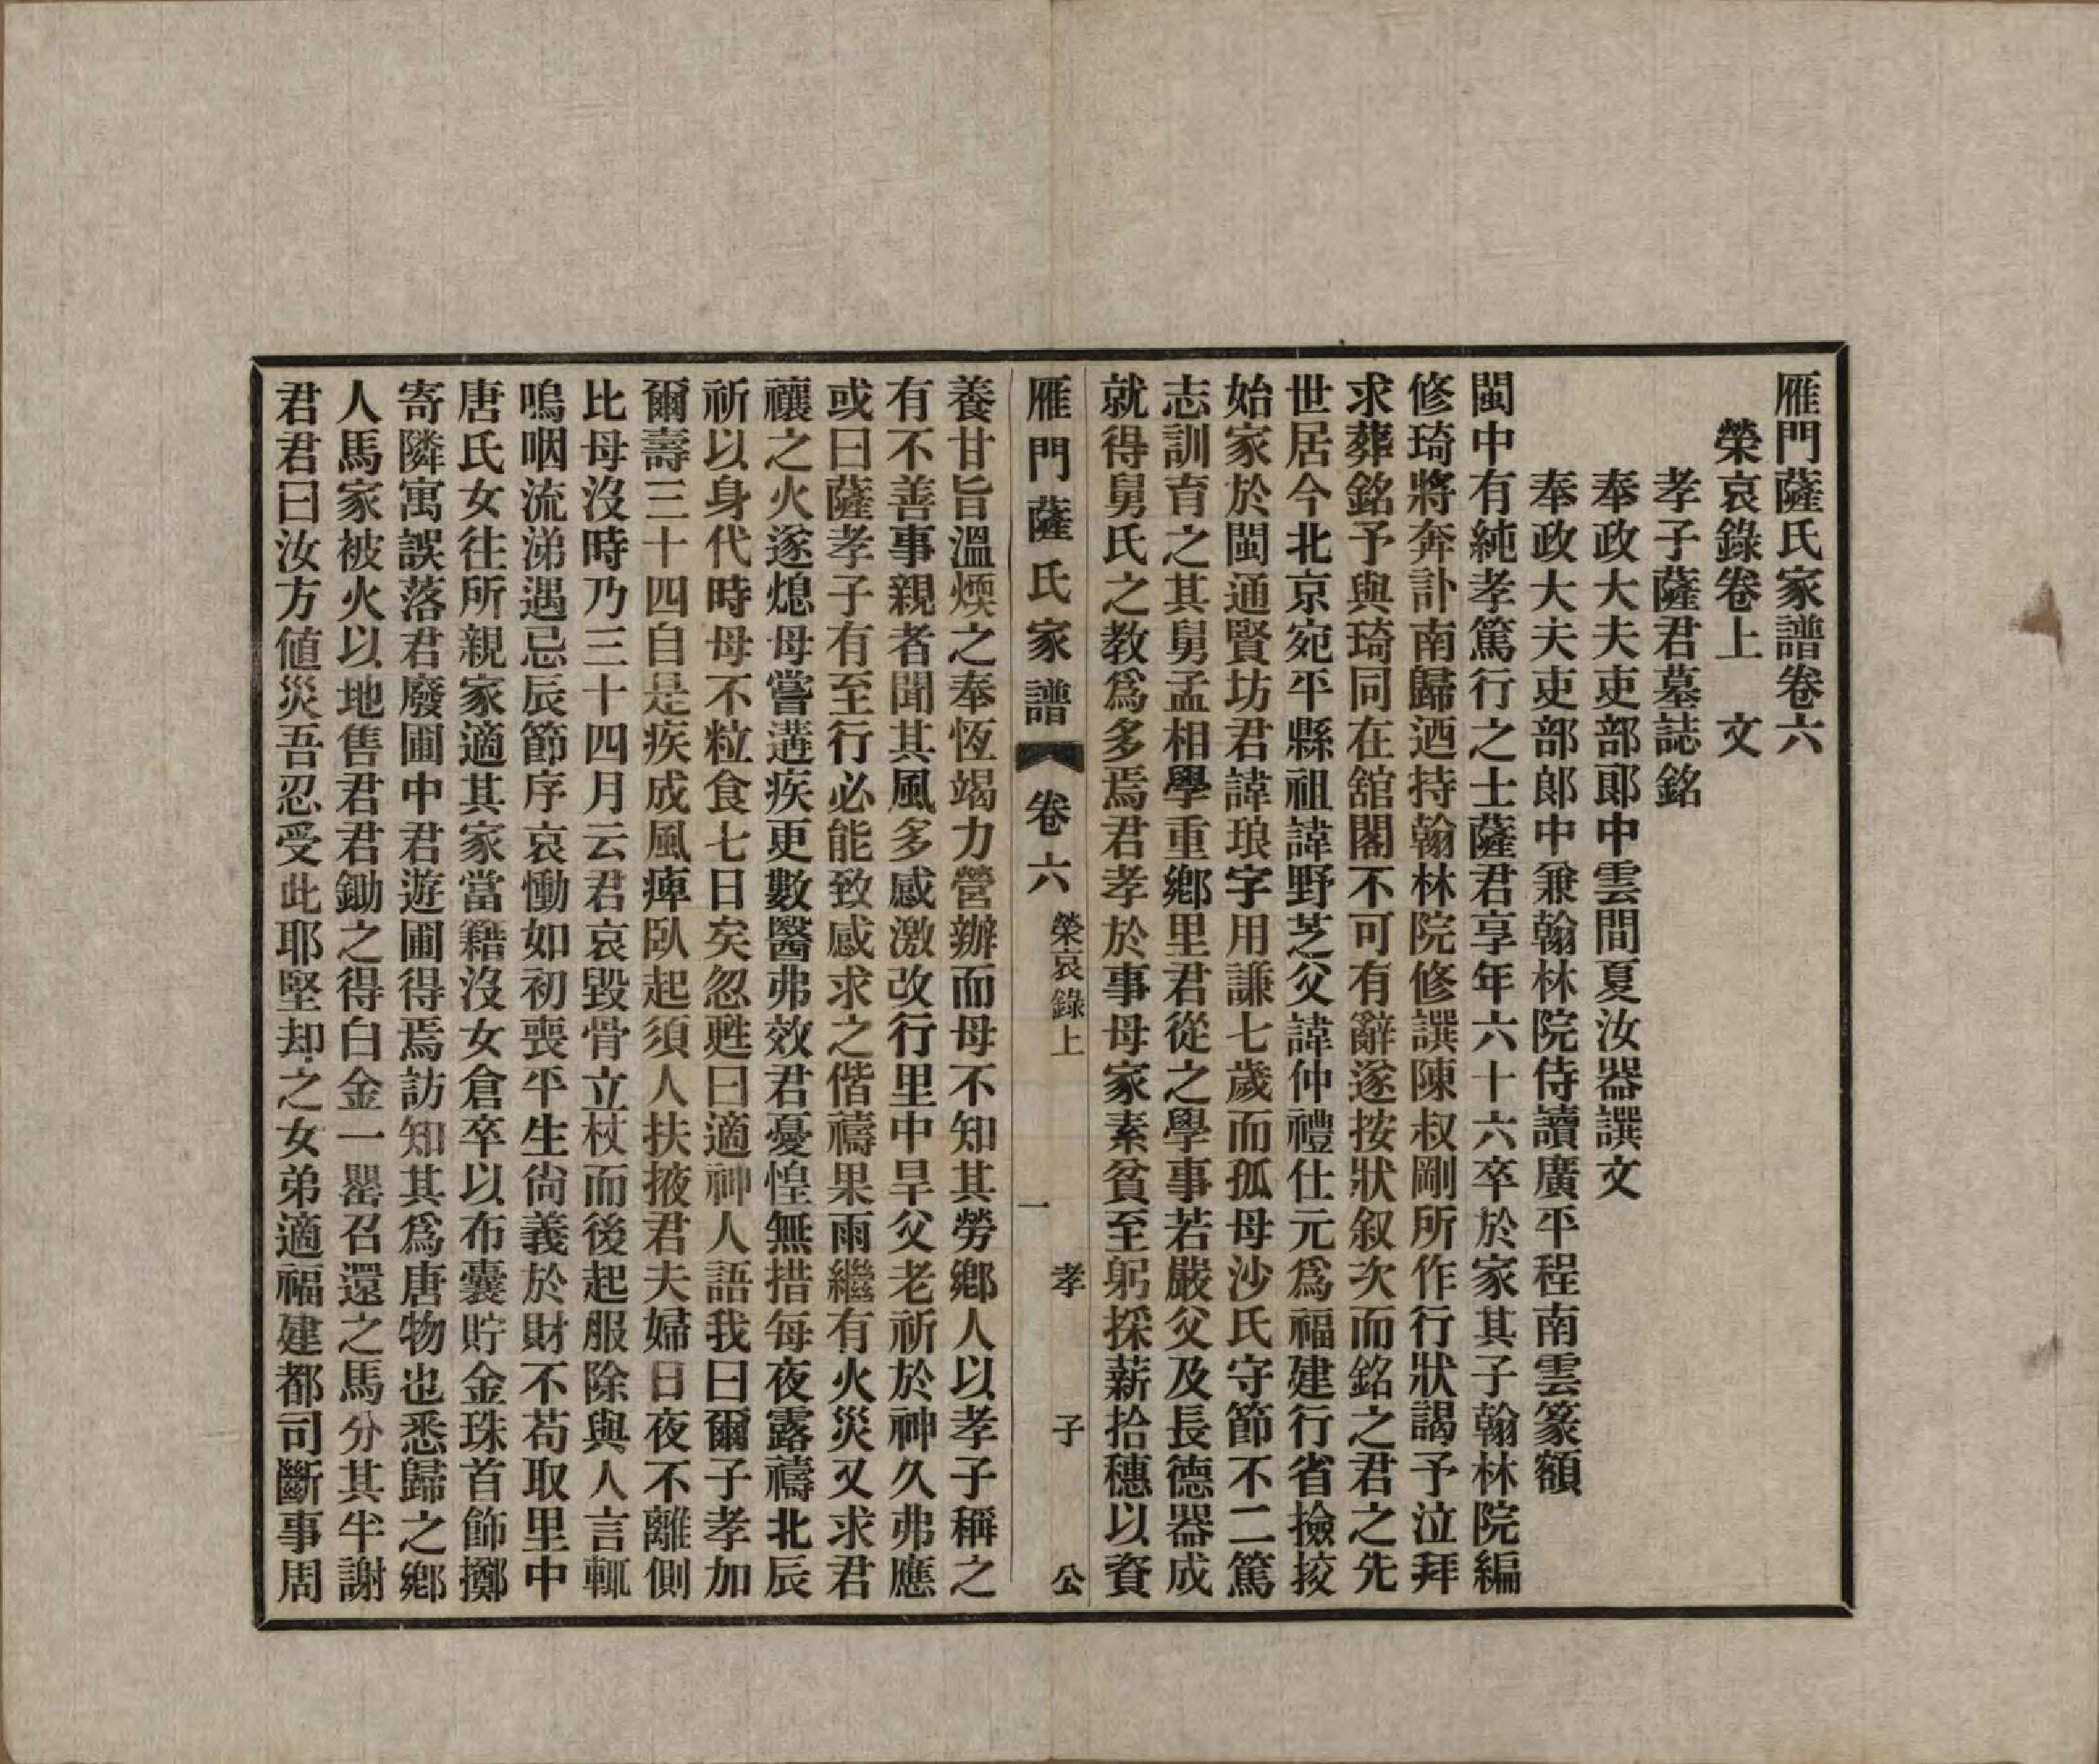 雁門薩氏家譜卷六
榮哀錄卷上　文
孝子薩君墓誌銘
奉政大夫吏部郎中雲間夏汝器譔文
奉政大夫吏部郎中兼翰林院侍讀廣平程南雲篆額
閩中有純孝篤行之士薩君享年六十六卒於家其子翰林院編
修琦將奔訃南歸迺持翰林院修譔陳叔剛所作行狀謁予泣拜
求葬銘予與琦同在舘閣不可有辭遂按狀叙次而銘之君之先
世居今北京宛平縣祖諱野芝父諱仲禮仕元爲福建行省撿挍
始家於閩通賢坊君諱琅字用謙七歲而孤母沙氏守節不二篤
志訓育之其舅孟相學重鄉里君從之學事若嚴父及長德器成
就得舅氏之教爲多焉君孝於事母家素貧至躬採薪拾穗以資
雁門薩氏家譜　卷六　榮哀錄上　一　孝子公
養甘旨溫煗之奉恆竭力營辦而母不知其勞鄉人以孝子稱之
有不善事親者聞其風多感激改行里中旱父老祈於神久弗應
或曰薩孝子有至行必能致感求之偕禱果雨繼有火災又求君
禳之火遂熄母嘗遘疾更數醫弗效君憂惶無措每夜露禱北辰
祈以身代時母不粒食七日矣忽甦曰適神人語我曰爾子孝加
爾壽三十四自是疾成風痺臥起須人扶掖君夫婦日夜不離側
比母沒時乃三十四月云君哀毀骨立杖而後起服除與人言輒
嗚咽流涕遇忌辰節序哀慟如初喪平生尙義於財不苟取里中
唐氏女往所親家適其家當籍沒女倉卒以布囊貯金珠首飾擲
寄隣寓誤落君廢圃中君遊圃得焉訪知其爲唐物也悉歸之鄉
人馬家被火以地售君君鋤之得白金一罌召還之馬分其半謝
君君曰汝方値災吾忍受此耶堅却之女弟適福建都司斷事周